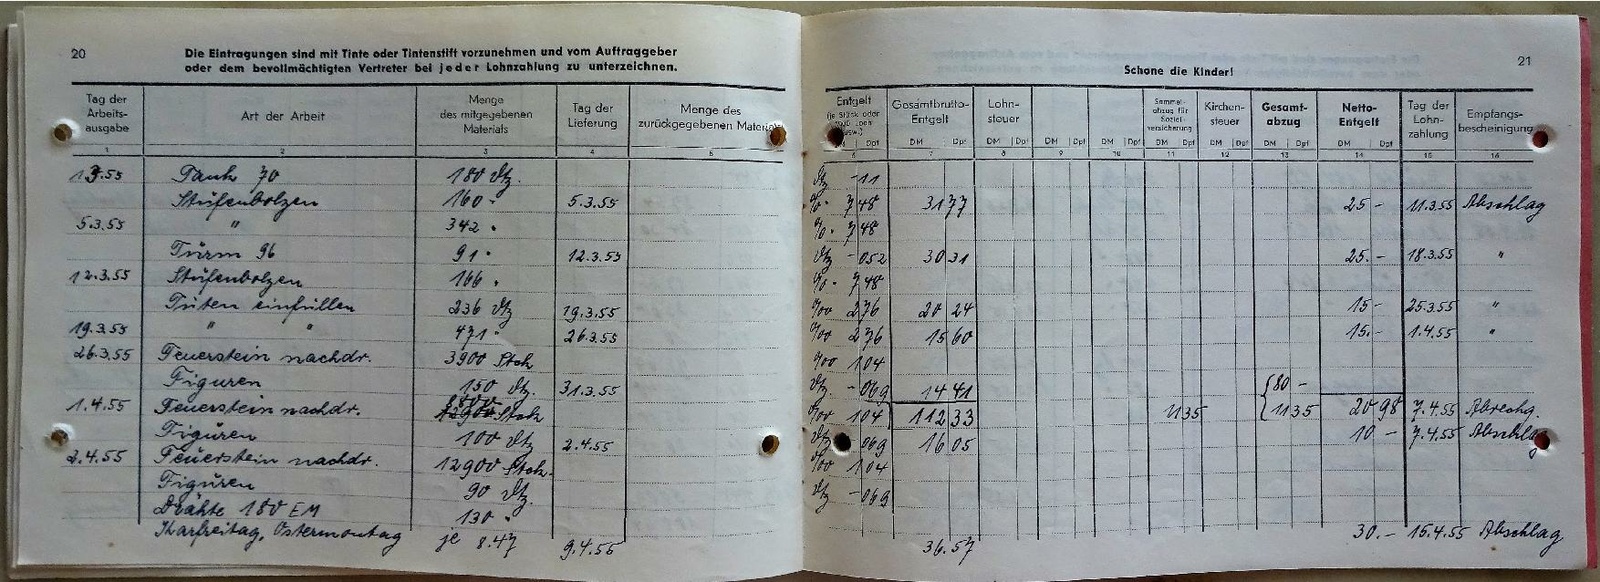 20
Die Eintragungen sind mit Tinte oder Tintenstift vorzunehmen und vom Auftraggeber
oder dem bevollmächtigten Vertreter bei jeder Lohnzahlung zu unterzeichnen.
Tag der Arbeits-ausgabe | Art der Arbeit | Menge des mitgegebenen Materials | Tag der Lieferung | Menge des zurückgegebenen Materials
1 2 3 4 5
1.3.55 Tank 70 180 dtz.
Stufenbolzen 160 " 5.3.55
5.3.55 " 342 "
Turm 96 91 " 12.3.55
12.3.55 Stufenbolzen 166 "
Tüten einfüllen 236 dtz 19.3.55
19.3.55 " " 471 " 26.3.55
26.3.55 Feuerstein nachdr. 3900 Stck
Figuren 150 dtz. 31.3.55
1.4.55 Feuerstein nachdr. Stck
Figuren 100 dtz 2.4.55
2.4.55 Feuerstein nachdr. 12900 Stck.
Figuren 90 dtz.
Drähte 180 EM 130 "
Karfreitag, Ostermontag je 8.47 9.4.55
21
Schone die Kinder!
Entgelt (je Stück oder | Gesamtbrutto-Entgelt | Lohn-steuer | Sammel-abzug für Sozial-versicherung | Kirchen-steuer | Gesamt-abzug | Netto-Entgelt | Tag der Lohn-zahlung | Empfangs-bescheinigung
DM Dpf DM Dpf DM Dpf DM Dpf DM Dpf DM Dpf DM Dpf
6 7 8 9 10 11 12 13 14 15 16
dtz -11
%. 7 48 31 77 25 - 11.3.55 Abschlag
%. 7 48
dtz - 052 30 31 25.- 18.3.55 "
%. 7 48
%00 276 20 24 15 - 25.3.55 "
%00 276 15 60 15.- 1.4.55 "
%00 104
dtz. - 069 14 41 80 -
%00 104 112 33 11 35 11 35 20 98 7.4.55 Abrechg.
dtz 069 16 05 10 - 7.4.55 Abschlag
%00 104
dtz - 069
36.57 30.- 15.4.55 Abschlag